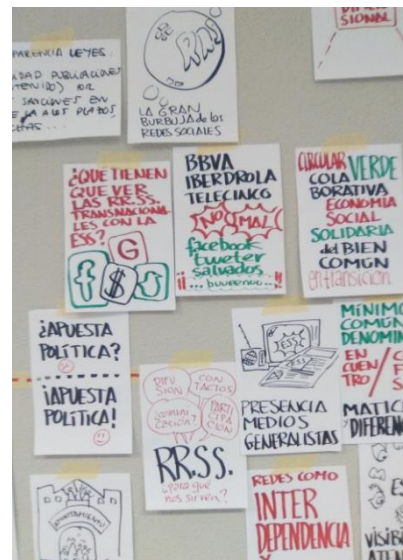 SIONAL
PARENCIA LEYES:
IDAD PUBLICACIONES
TENIDOS) OR
SANCIONES EN
A LOS PLAZOS,
RRSS
LA GRAN
BURBUJA de las
REDES SOCIALES
¿QUE TIENEN
QUE VER
LAS RR.SS.
TRANSNACIONA
LES CON LA
ESS?
G
f $
BBVA
IBERDROLA
TELECINCO
¡NO! ¡MAL!
facebook
tweeter
salvados
¡¡... buueenoo...!!
CIRCULAR VERDE
COLA
BORATIVA
ECONOMÍA
SOCIAL
SOLIDARIA
del BIEN
COMÚN
en transición
¿APUESTA
POLÍTICA?
¡APUESTA
POLÍTICA!
DIFU
SIÓN
CON
TACTOS
¿COMUNI
ZACIÓN?
PARTI
CIPA
CIÓN
RR.SS.
¿para qué
nos sirven?
¡ESS!
PRESENCIA
MEDIOS
GENERALISTAS
MÍNIMO
COMÚN
DENOMIN
EN
CUEN
TRO/
MATIC
DIFEREN
AYUNTAMIENTO
REDES COMO
INTER
DEPENDENCIA
Y
ES
VISIB